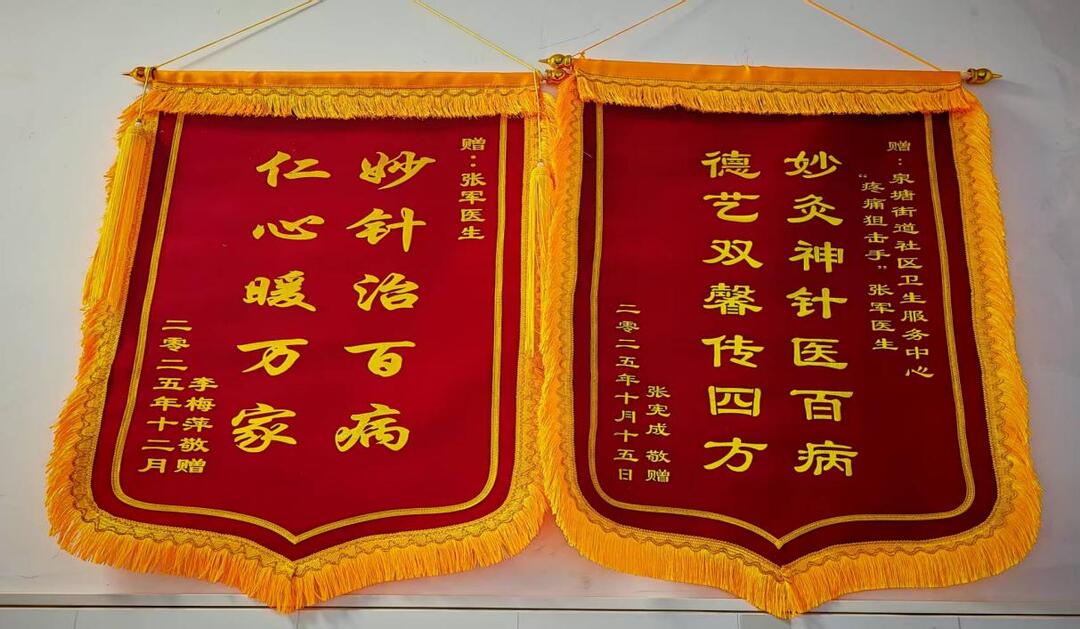 赠：张军医生
妙针治百病
仁心暖万家
李梅萍敬赠
二零二五年十二月
赠：泉塘街道社区卫生服务中心
“疼痛狙击手”张军医生
妙灸神针医百病
德艺双馨传四方
张宪成 敬赠
二零二五年十月十五日